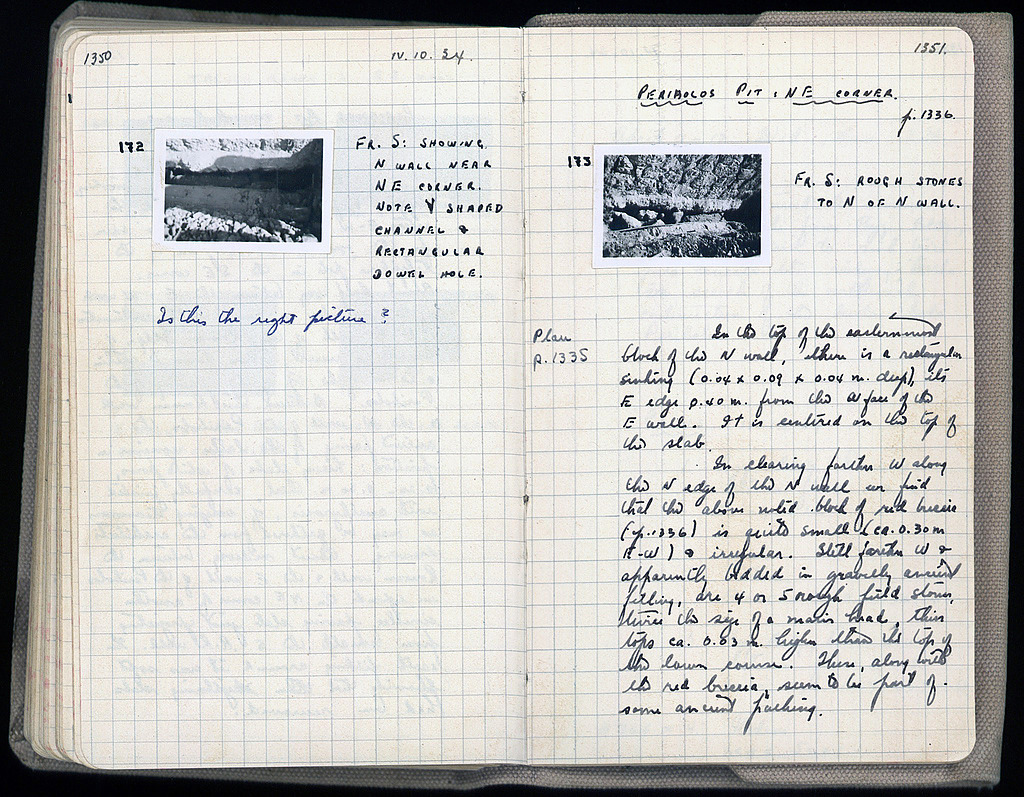 1350
IV. 10. 34.
172
FR. S: SHOWING
N WALL NEAR
NE CORNER.
NOTE V SHAPED
CHANNEL &
RECTANGULAR
DOWEL HOLE.
Is this the right picture?
1351.
PERIBOLOS PIT : NE CORNER.
p. 1336.
173
FR. S: ROUGH STONES
TO N OF N WALL.
Plan
p. 1335
In the top of the easternmost
block of the N wall, there is a rectangular
sinking (0.04 x 0.09 x 0.04 m. deep), its
E edge 0.40 m. from the W face of the
E wall. It is centered on the top of
the slab.
In clearing farther W along
the N edge of the N wall we find
that the above noted block of red breccia
(p. 1336) is quite small (ca. 0.30 m
E-W) & irregular. Still farther W &
apparently bedded in gravelly ancient
filling, are 4 or 5 rough field stones,
the size of a man's head, their
tops ca. 0.03 m. higher than the top of
the lower course. These, along with
the red breccia, seem to be part of
some ancient packing.